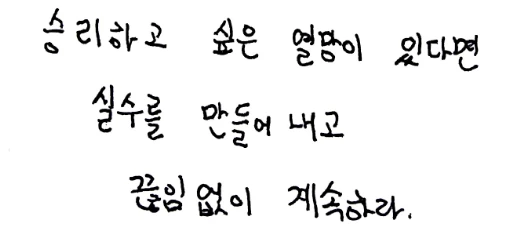 승리하고 싶은 열망이 있다면
실수를 만들어 내고
끊임없이 계속하라.